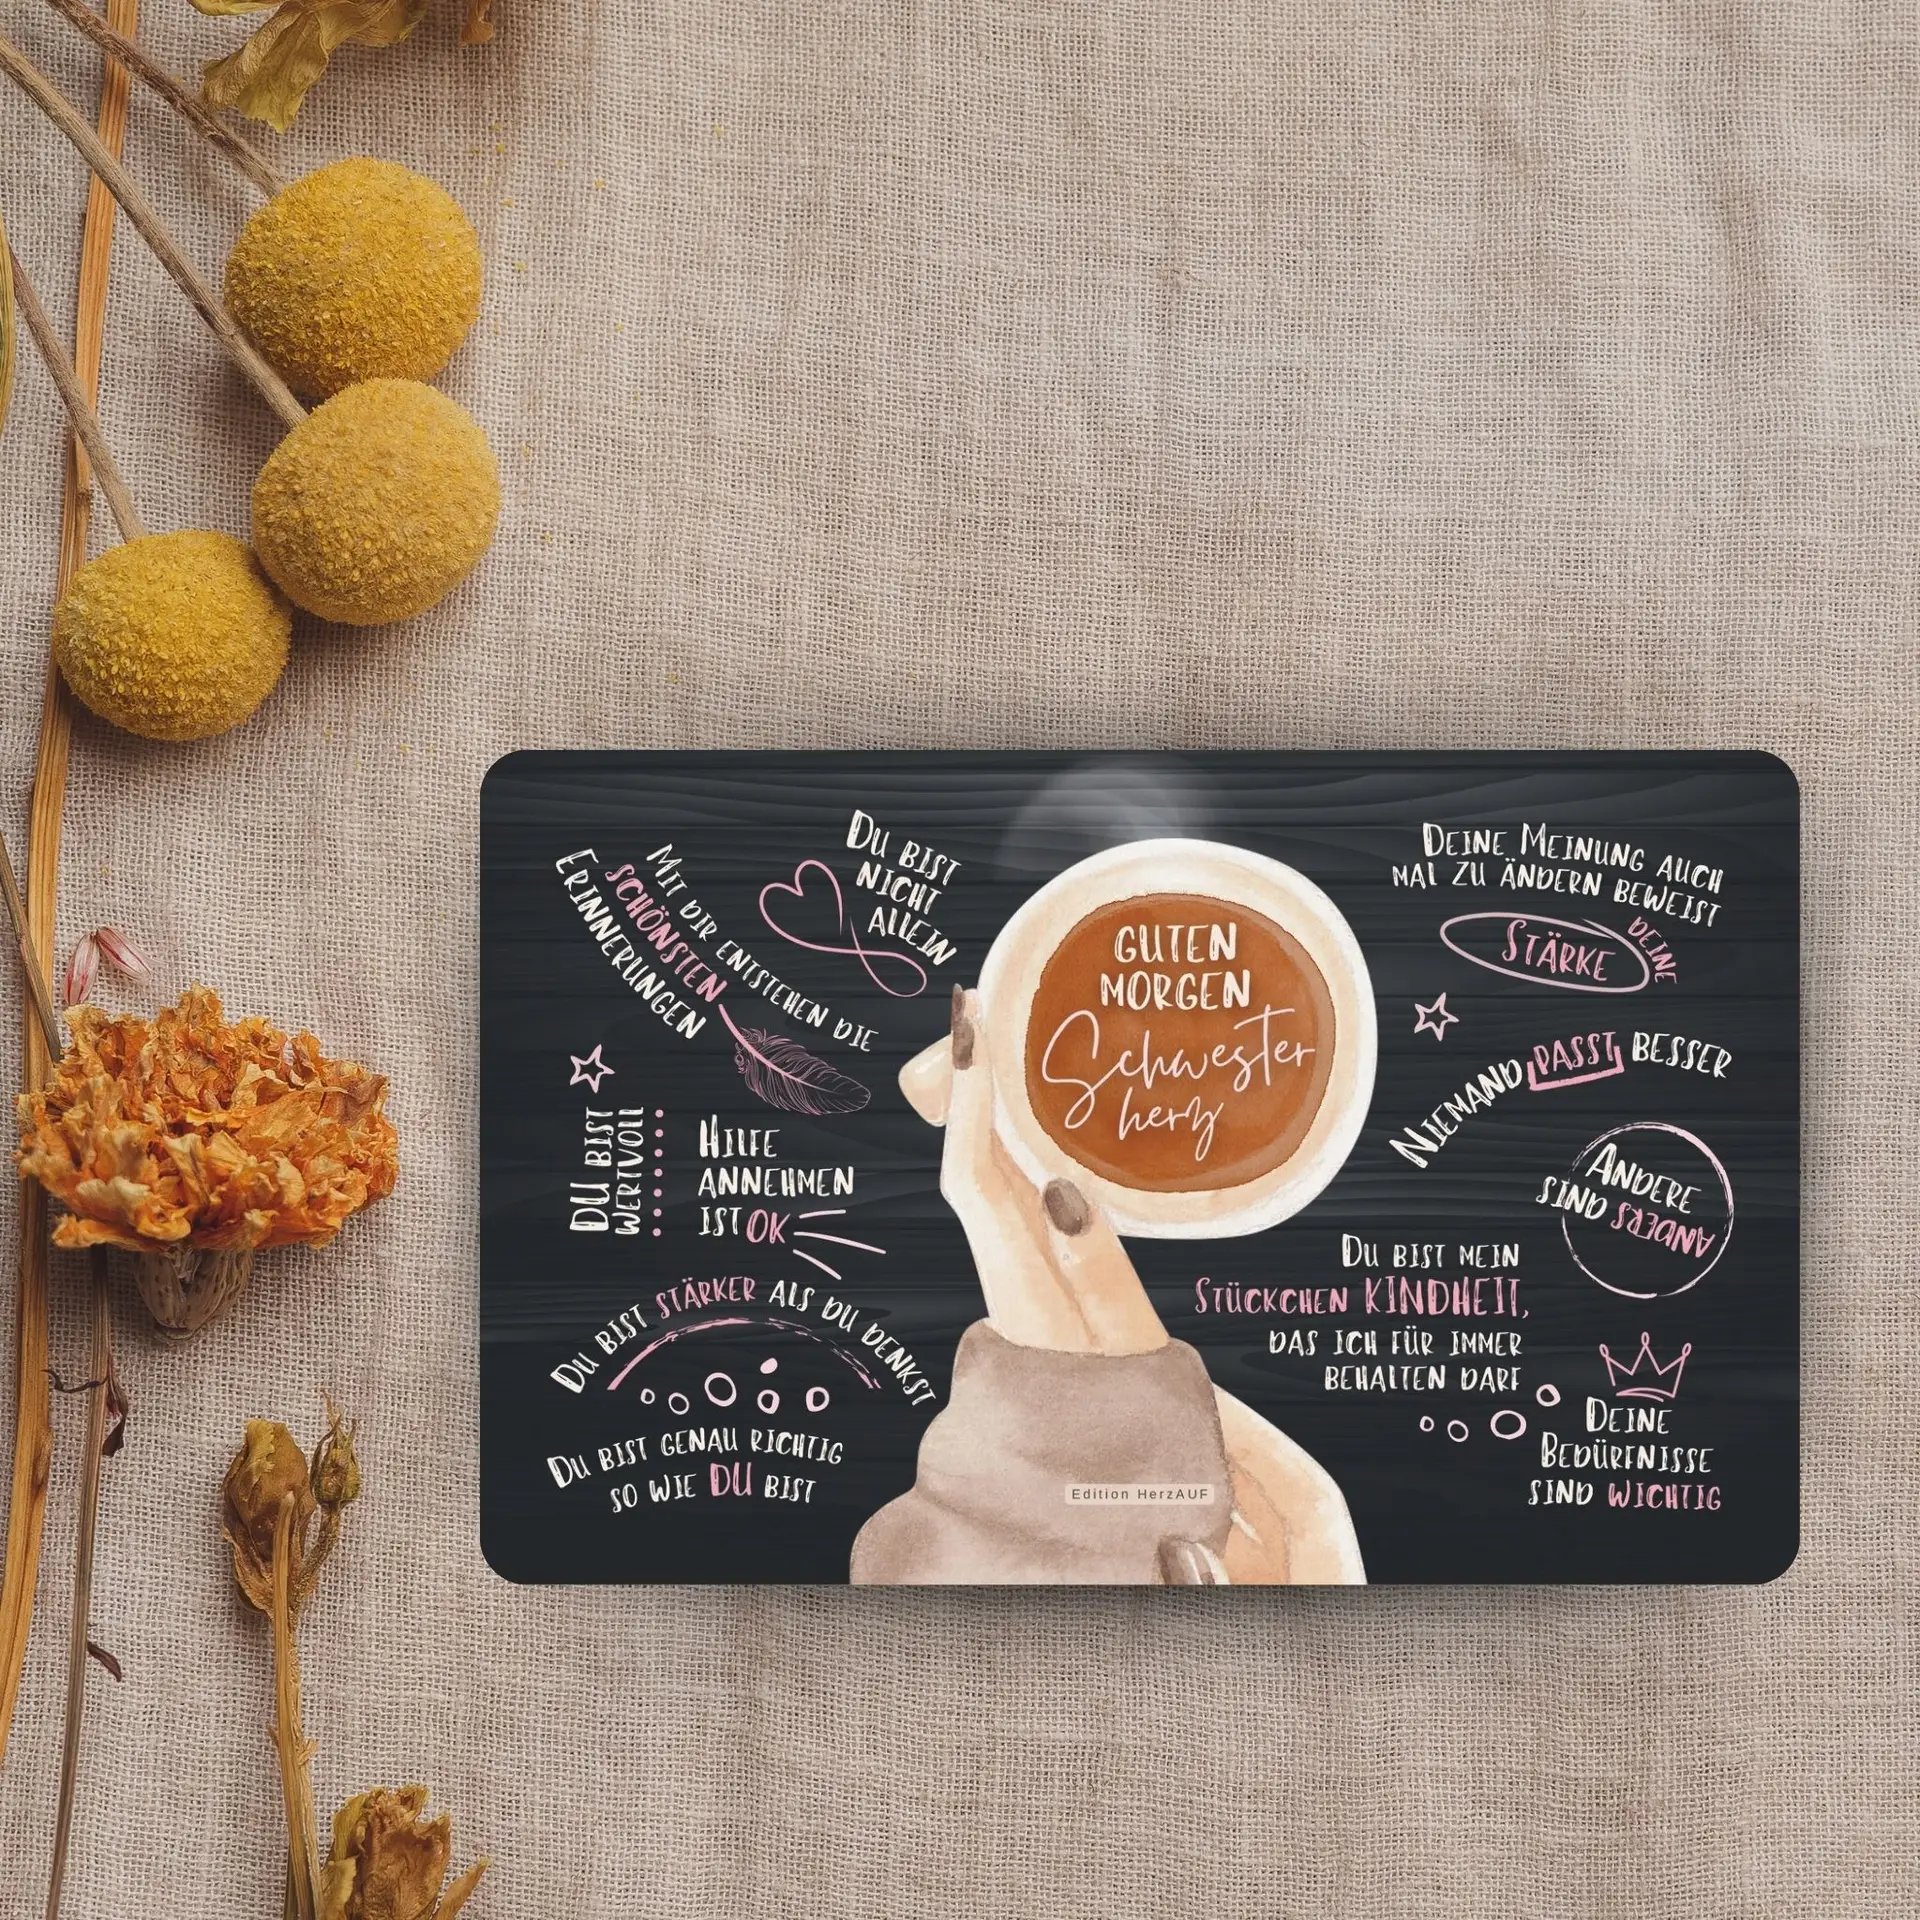 Du bist
nicht
allein
Mit dir entstehen die
schönsten
Erinnerungen
Du bist
wertvoll
Hilfe
annehmen
ist OK
Du bist stärker als du denkst
Du bist genau richtig
so wie DU bist
GUTEN
MORGEN
Schwester
herz
Edition HerzAUF
Deine Meinung auch
mal zu ändern beweist
deine
Stärke
Niemand passt besser
Andere
sind anders
Du bist mein
Stückchen KINDHEIT,
das ich für immer
behalten darf
Deine
Bedürfnisse
sind wichtig